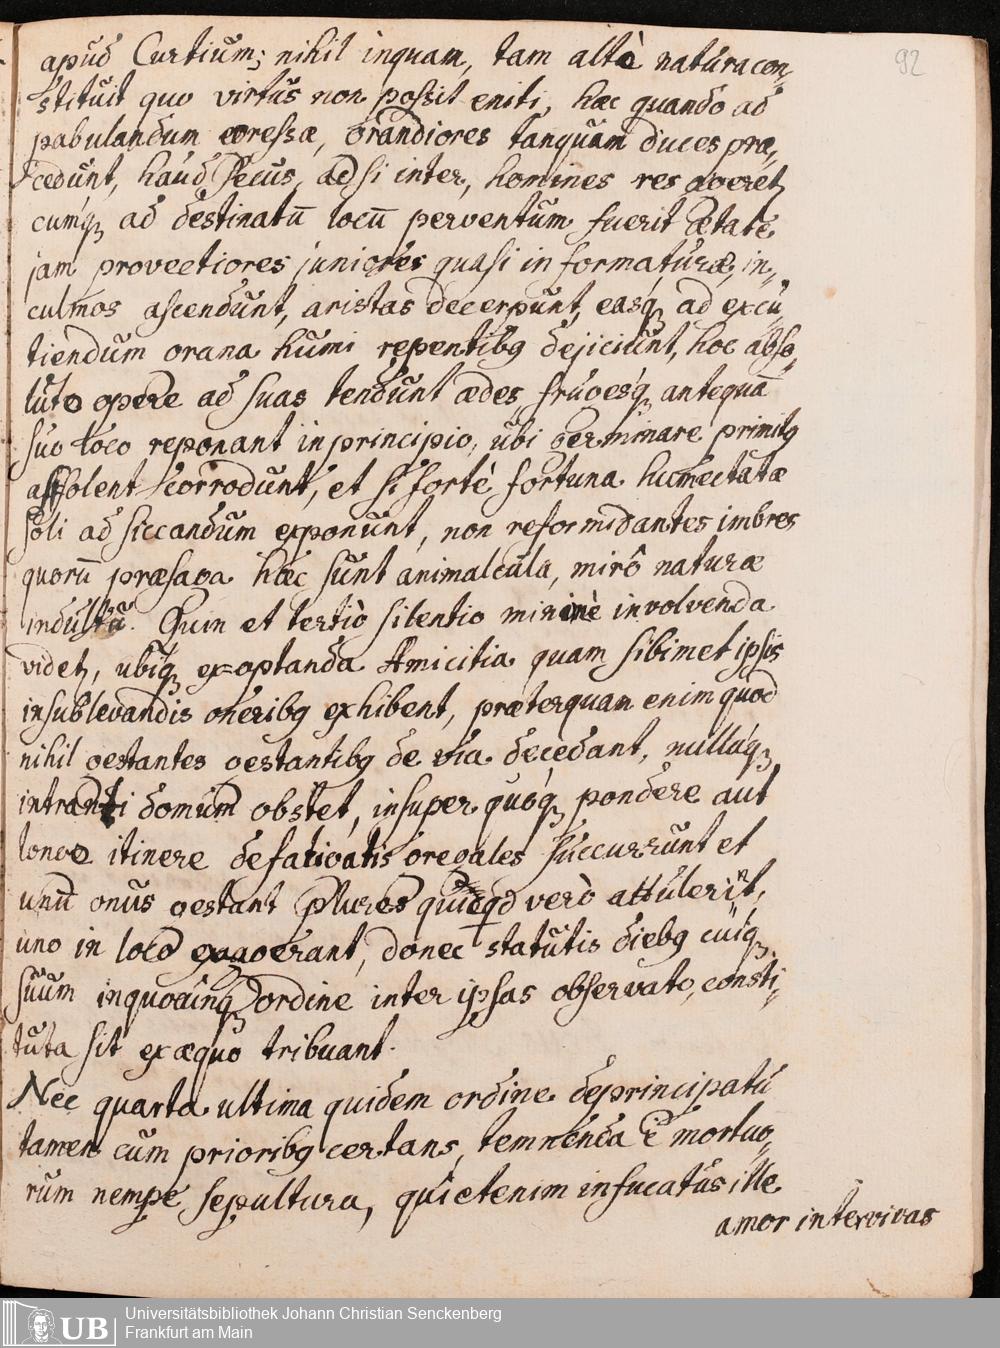 92
apud Curtium; nihil inquam, tam altè natura con„
stituit quo virtus non possit eniti, hæc quando ad
pabulandum egressæ, grandiores tanquam duces præ„
cedunt, haud secus, ac si inter, homines res ageret,
cumq ad destinatū locū perventum fuerit ætate
jam provectiores juniores quasi in formaturæ, in„
culmos ascendunt, aristas decerpunt, easq ad excu„
tiendum grana humi repentibq dejiciunt, hoc abso„
luto opere ad suas tendunt ædes, frugesq antequā
suo loco reponant in principio, ubi germinare primitq
assolent corrodunt, et si fortè fortuna humectatæ
soli ad siccandum exponunt, non reformidantes imbres
quorū præsaga hæc sunt animalcula, mirô naturæ
indultu. Quin et tertiò silentio minimè involvenda
videt, ubiq exoptanda Amicitia quam sibimet ipsis
in sublevandis oneribq exhibent, præterquam enim quod
nihil gestantes gestantibq de via decedant, nullaq
intranti domum obstet, insuper quoq pondere aut
longo itinere defatigatis gregales succurrunt et
unū onus gestant plures quicqd verò attulerint,
uno in loco exaggerant, donec statutis diebq cuiq
suum in quocunq ordine inter ipsas observato, consti„
tuta sit ex æquo tribuant.
Nec quarta ultima quidem ordine de principatu
tamen cum prioribq certans, temnenda ē mortuo„
rum nempe sepultura, qui etenim infucatus ille
amor inter vivas
Universitätsbibliothek Johann Christian Senckenberg
Frankfurt am Main
UB